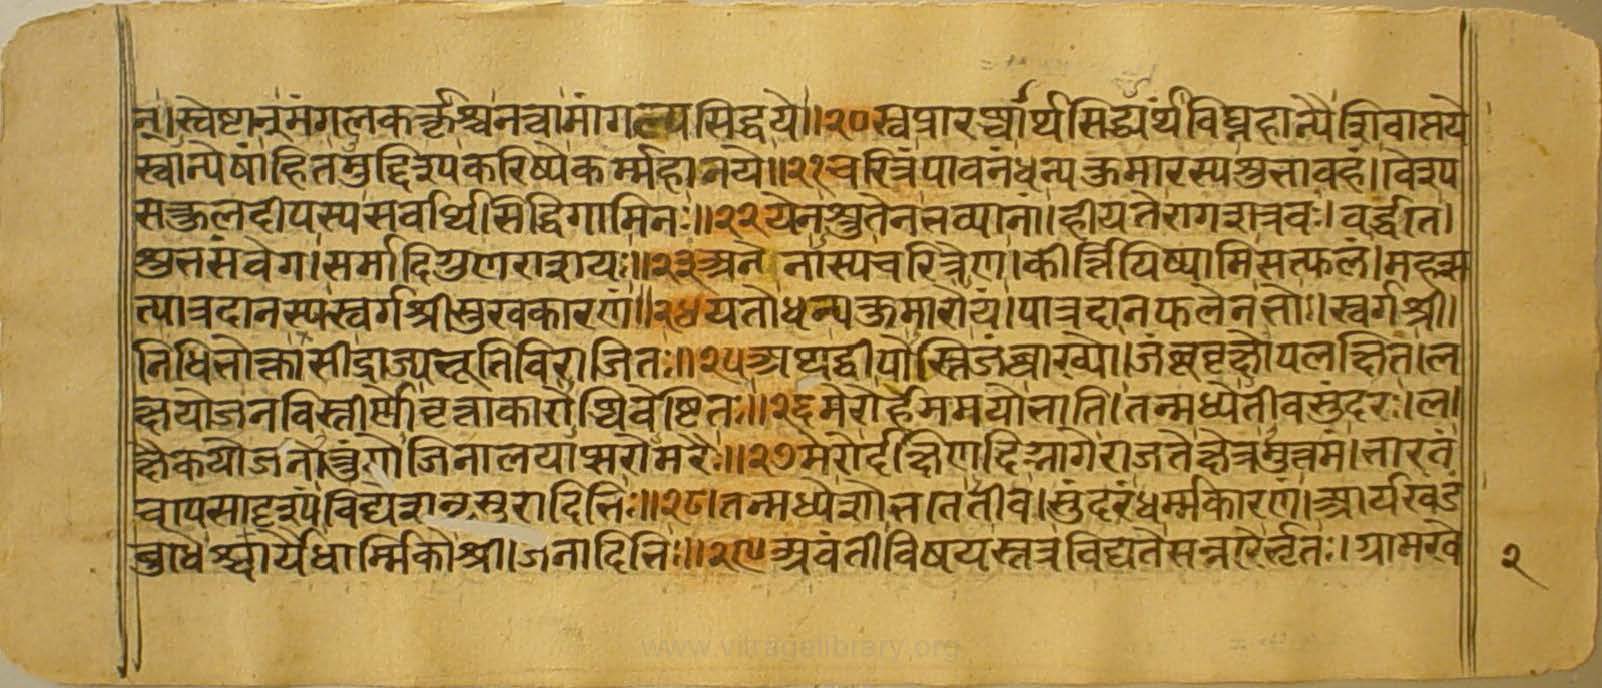 न्।स्वेष्टान्मंगलकर्तृंश्चनत्वामांगल्यसिद्धये॥२०स्वप्रारब्धार्थसिद्ध्यर्थंविघ्नहान्यैशिवाप्तये
स्वान्येषांहितमुद्दिश्यकरिष्येकर्म्महानये॥२१चरित्रंपावनंधन्यकुमारस्यशुभावहं।वैश्य
सत्कुलदीपस्यसर्वार्थसिद्धिगामिनः॥२२येनश्रुतेनभव्यानां।हीयतेरागशत्रवः।वर्द्धंते।
शुभसंवेग।सर्मादिगुणराशयः॥२३अने नास्यचरित्रेण।कीर्त्तियिष्यामिसत्फलं।महत्स
त्पात्रदानस्यस्वर्गश्रीसुखकारणं॥२४यतोधन्यकुमारोयं।पात्रदानफलेनभोः।स्वर्गश्री।
निधिभोक्तासीद्राज्यभूतिविराजितः॥२५अथद्वीपोस्तिजंब्वाख्यो।जंबूवृक्षोपलक्षितं।ल
क्षयोजनविस्तीर्णोवृत्ताकारोब्धिवेष्टितः॥२६मेरोर्हेममयोभाति।तन्मध्येतीवसुंदरः।ल।
क्षैकयोजनोत्तुंगोजिनालयाप्सरोमरैः॥२७मेरोर्दक्षिणदिग्भागेराजतेक्षेत्रमुत्तमं।भारतं
चापसादृश्यंविद्येशनृसुरादिभिः॥२८तन्मध्येशोभतेतीव।सुंदरंधर्म्मकारणं।आर्यखंडं
बुधैश्चार्यधार्म्मिकाश्री।जनादिभिः॥२९अवंतीविषयस्तत्रविद्यतेसन्नरैर्भृतः।ग्रामखे
२
www.vitragelibrary.org